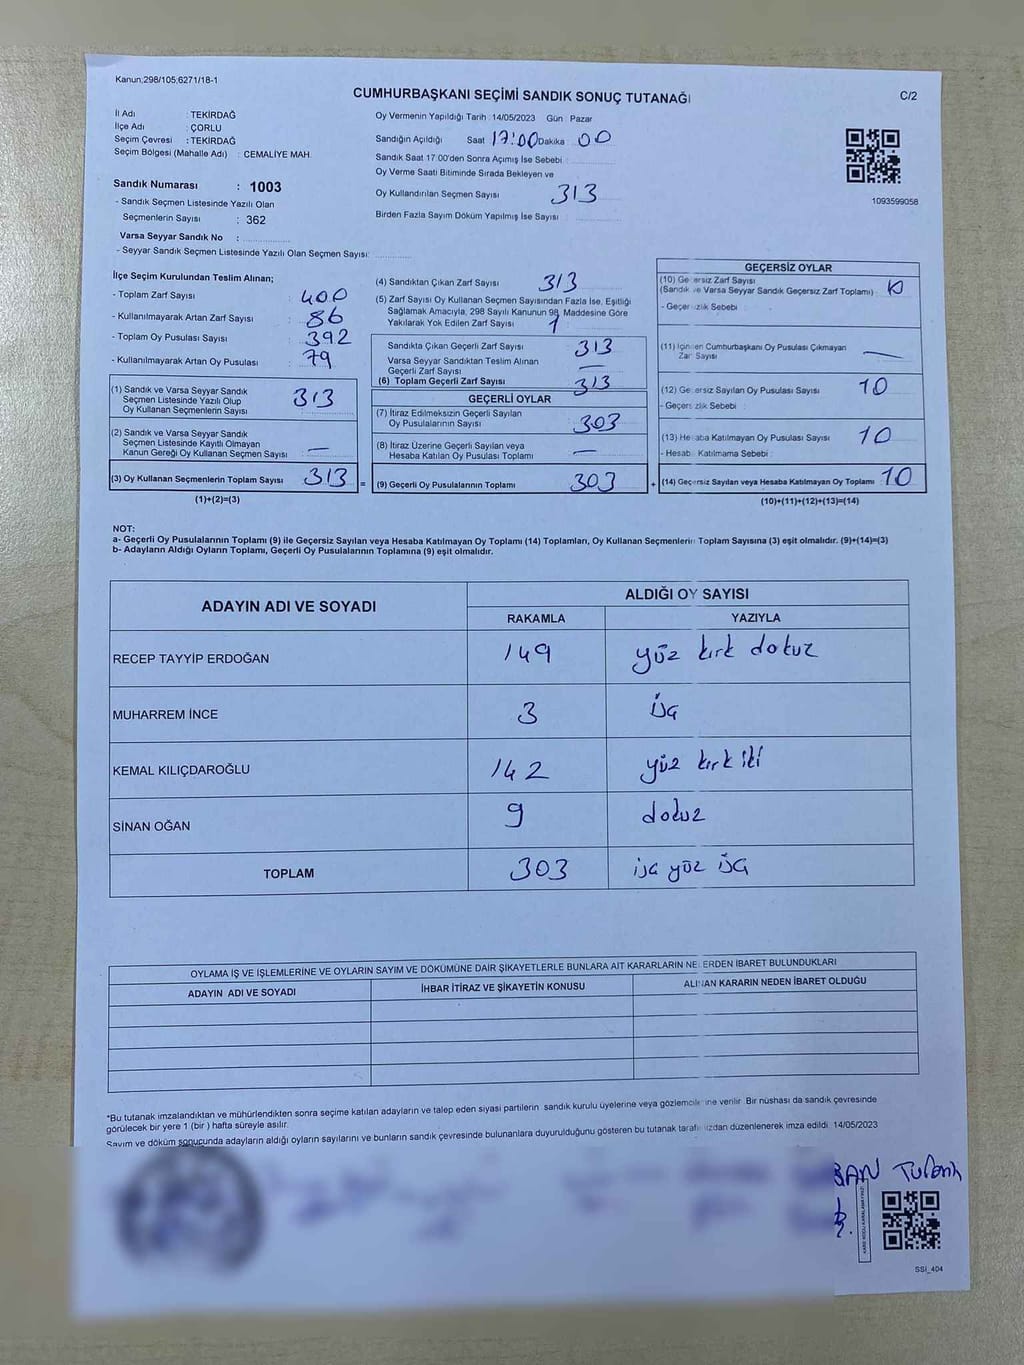 Kanun,298/105,6271/18-1
CUMHURBAŞKANI SEÇİMİ SANDIK SONUÇ TUTANAĞI
C/2
İl Adı : TEKİRDAĞ
İlçe Adı : ÇORLU
Seçim Çevresi : TEKİRDAĞ
Seçim Bölgesi (Mahalle Adı) : CEMALİYE MAH.
Sandık Numarası : 1003
- Sandık Seçmen Listesinde Yazılı Olan
Seçmenlerin Sayısı : 362
Varsa Seyyar Sandık No :
- Seyyar Sandık Seçmen Listesinde Yazılı Olan Seçmen Sayısı:
Oy Vermenin Yapıldığı Tarih : 14/05/2023 Gün : Pazar
Sandığın Açıldığı Saat 17:00 Dakika : 00
Sandık Saat 17.00'den Sonra Açımış İse Sebebi :
Oy Verme Saati Bitiminde Sırada Bekleyen ve
Oy Kullandırılan Seçmen Sayısı 313
Birden Fazla Sayım Döküm Yapılmış İse Sayısı :
1093599058
İlçe Seçim Kurulundan Teslim Alınan;
- Toplam Zarf Sayısı : 400
- Kullanılmayarak Artan Zarf Sayısı : 86
- Toplam Oy Pusulası Sayısı : 392
- Kullanılmayarak Artan Oy Pusulası : 79
(1) Sandık ve Varsa Seyyar Sandık
Seçmen Listesinde Yazılı Olup
Oy Kullanan Seçmenlerin Sayısı 313
(2) Sandık ve Varsa Seyyar Sandık
Seçmen Listesinde Kayıtlı Olmayan
Kanun Gereği Oy Kullanan Seçmen Sayısı : —
(3) Oy Kullanan Seçmenlerin Toplam Sayısı 313
(1)+(2)=(3)
(4) Sandıktan Çıkan Zarf Sayısı 313
(5) Zarf Sayısı Oy Kullanan Seçmen Sayısından Fazla İse, Eşitliği
Sağlamak Amacıyla, 298 Sayılı Kanunun 98. Maddesine Göre
Yakılarak Yok Edilen Zarf Sayısı : 1
Sandıkta Çıkan Geçerli Zarf Sayısı 313
Varsa Seyyar Sandıktan Teslim Alınan
Geçerli Zarf Sayısı —
(6) Toplam Geçerli Zarf Sayısı 313
GEÇERLİ OYLAR
(7) İtiraz Edilmeksizin Geçerli Sayılan
Oy Pusulalarının Sayısı 303
(8) İtiraz Üzerine Geçerli Sayılan veya
Hesaba Katılan Oy Pusulası Toplamı —
= (9) Geçerli Oy Pusulalarının Toplamı 303
GEÇERSİZ OYLAR
(10) Geçersiz Zarf Sayısı
(Sandık ve Varsa Seyyar Sandık Geçersiz Zarf Toplamı) :
- Geçersizlik Sebebi
(11) İçinden Cumhurbaşkanı Oy Pusulası Çıkmayan
Zarf Sayısı —
(12) Geçersiz Sayılan Oy Pusulası Sayısı 10
- Geçersizlik Sebebi :
(13) Hesaba Katılmayan Oy Pusulası Sayısı 10
- Hesaba Katılmama Sebebi :
+ (14) Geçersiz Sayılan veya Hesaba Katılmayan Oy Toplamı 10
(10)+(11)+(12)+(13)=(14)
NOT:
a- Geçerli Oy Pusulalarının Toplamı (9) ile Geçersiz Sayılan veya Hesaba Katılmayan Oy Toplamı (14) Toplamları, Oy Kullanan Seçmenlerin Toplam Sayısına (3) eşit olmalıdır. (9)+(14)=(3)
b- Adayların Aldığı Oyların Toplamı, Geçerli Oy Pusulalarının Toplamına (9) eşit olmalıdır.
ADAYIN ADI VE SOYADI
ALDIĞI OY SAYISI
RAKAMLA YAZIYLA
RECEP TAYYİP ERDOĞAN 149 yüz kırk dokuz
MUHARREM İNCE 3 üç
KEMAL KILIÇDAROĞLU 142 yüz kırk iki
SİNAN OĞAN 9 dokuz
TOPLAM 303 üç yüz üç
OYLAMA İŞ VE İŞLEMLERİNE VE OYLARIN SAYIM VE DÖKÜMÜNE DAİR ŞİKAYETLERLE BUNLARA AİT KARARLARIN NELERDEN İBARET BULUNDUKLARI
ADAYIN ADI VE SOYADI İHBAR İTİRAZ VE ŞİKAYETİN KONUSU ALINAN KARARIN NEDEN İBARET OLDUĞU
*Bu tutanak imzalandıktan ve mühürlendikten sonra seçime katılan adayların ve talep eden siyasi partilerin sandık kurulu üyelerine veya gözlemcilerine verilir. Bir nüshası da sandık çevresinde
görülecek bir yere 1 (bir ) hafta süreyle asılır.
Sayım ve döküm sonucunda adayların aldığı oyların sayılarını ve bunların sandık çevresinde bulunanlara duyurulduğunu gösteren bu tutanak tarafımızdan düzenlenerek imza edildi. 14/05/2023
SSİ_404